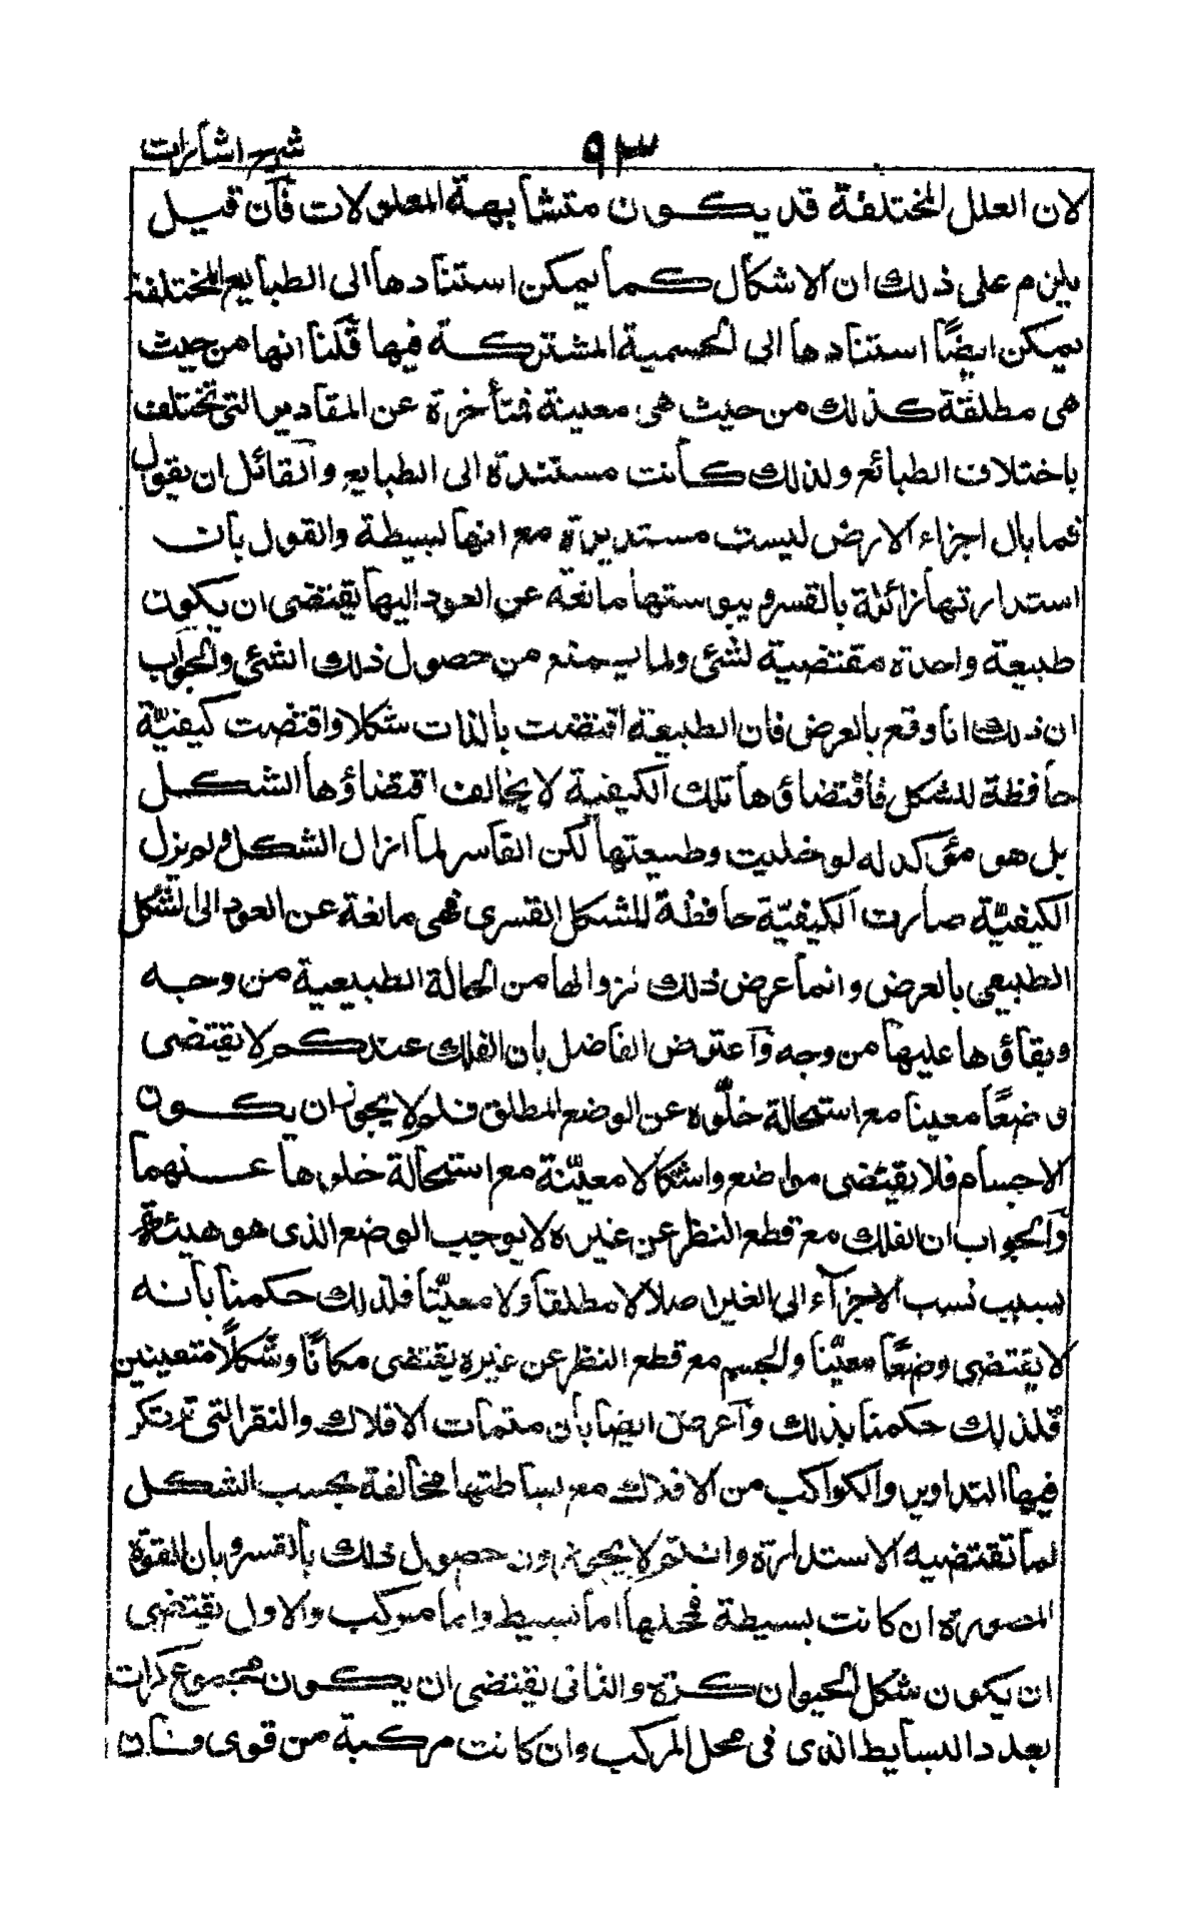 ٩٣ شرح اشارات
لان العلل المختلفة قد يكون متشابهة المعلولات فآن قيل
يلزم على ذلك ان الاشكال كما يمكن استنادها الى الطبايع المختلفة
يمكن ايضًا استنادها الى الجسمية المشتركة فيها قلنا انها من حيث
هى مطلقة كذلك من حيث هى معينة متأخرة عن المقادير التى تختلف
باختلاف الطبائع ولذلك كانت مستندة الى الطبايع وآلقائل ان يقول
فما بال اجزاء الارض ليست مستديرة مع انها بسيطة والقول بان
استدارتها زائلة بالقسر ويبوستها مانعة عن العود اليها يقتضى ان يكون
طبيعة واحدة مقتضية لشئ ولما يمنع من حصول ذلك الشئ والجواب
ان ذلك انما وقع بالعرض فان الطبيعة اقتضت بالذات شكلا واقتضت كيفيّة
حافظة للشكل فاقتضاؤها تلك الكيفية لا يخالف اقتضاؤها الشكل
بل هو مؤكد له لو خليت وطبيعتها لكن القاسر لما ازال الشكل ولم يزل
الكيفيّة صارت الكيفيّة حافظة للشكل القسرى فهى مانعة عن العود الى الشكل
الطبيعى بالعرض وانما عرض ذلك لزوالها من الحالة الطبيعية من وجه
وبقاؤها عليها من وجه وآعترض الفاضل بان الفلك عندكم لا يقتضى
وضعًا معينا مع استحالة خلّوه عن الوضع المطلق فلم لا يجوز ان يكون
الاجسام فلا يقتضى مواضع واشكالا معيّنة مع استحالة خلوها عنهما
وآلجواب ان الفلك مع قطع النظر عن غيره لا يوجب الوضع الذى هو هيئة
بسبب نسب الاجزآء الى الغير اصلا لا مطلقا ولا معيّنا فلذلك حكمنا بانه
لا يقتضى وضعًا معيّنا والجسم مع قطع النظر عن غيره يقتضى مكانًا وشكلًا متعينين
فلذلك حكمنا بذلك وآعرض ايضا بان متممات الافلاك والنقر التى تركز
فيها التداوير والكواكب من الافلاك مع بساطتها مخالفة بحسب الشكل
لما تقتضيه الاستدارة وانتم لا يجوزون حصول ذلك بالقسر وبان القوة
المصورة ان كانت بسيطة فمحلها اما بسيط واما مركب والاول يقتضى
ان يكون شكل الحيوان كرة والثانى يقتضى ان يكون مجموع كرات
بعدد البسايط الذى فى محل المركب وان كانت مركبة من قوى وسان